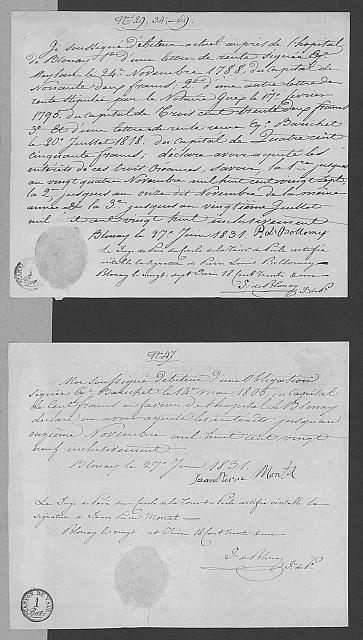 N.os 29, 34,-69.
Je soussigné débiteur actuel auprès de l'hôpital
de Blonay 1.o d'une lettre de rente signée Eg.
le 24.e Novembre 1788, du Capital de
Nonante deux francs; 2.o d'une autre lettre de
rente stipulée par le Notaire le 17.e fevrier
1790. du Capital de Trois cent trente deux francs
3.o Et d'une lettre de rente reçue Eg.e Banchet
le 20.e Juillet 1818. du Capital de Quatre cent
Cinquante francs; déclare avoir aquité les
intérêts de ces trois Créances, savoir la 1.re jusques
au vingt quatre Novembre mil huit cent vingt sept
la 2.e jusques au onze de Novembre de la même
année & la 3.e jusques au vingtième Juillet
mil huit cent vingt huit inclusivement
Blonay le 27.e Juin 1831. P. L.s Bollomey
Le Juge de Paix du Cercle de la Tour de Peilz certifie
véritable la signature de Pierre Louis Bollomey
Blonay le vingt sept Juin 18 cent trente & un
F. de Blonay J. de P.
N.o 47
Moi soussigné débiteur d'une Obligation
signée Eg.e Banchet le 14.e Mai 1806. du Capital
de Cent francs en faveur de l'hôpital de Blonay
déclare en avoir aquité les intérêts jusqu'au
onzième Novembre mil huit cent vingt
neuf inclusivement
Blonay le 27.e Juin 1831.
Jean Pierre Montet
Le Juge de Paix du Cercle de la Tour de Peilz certifie véritable la
signature de Jean Pierre Montet
Blonay le vingt sept Juin 18 cent trente & un
F. de Blonay J. de P.
CANTON DE VAUD
1
Batz